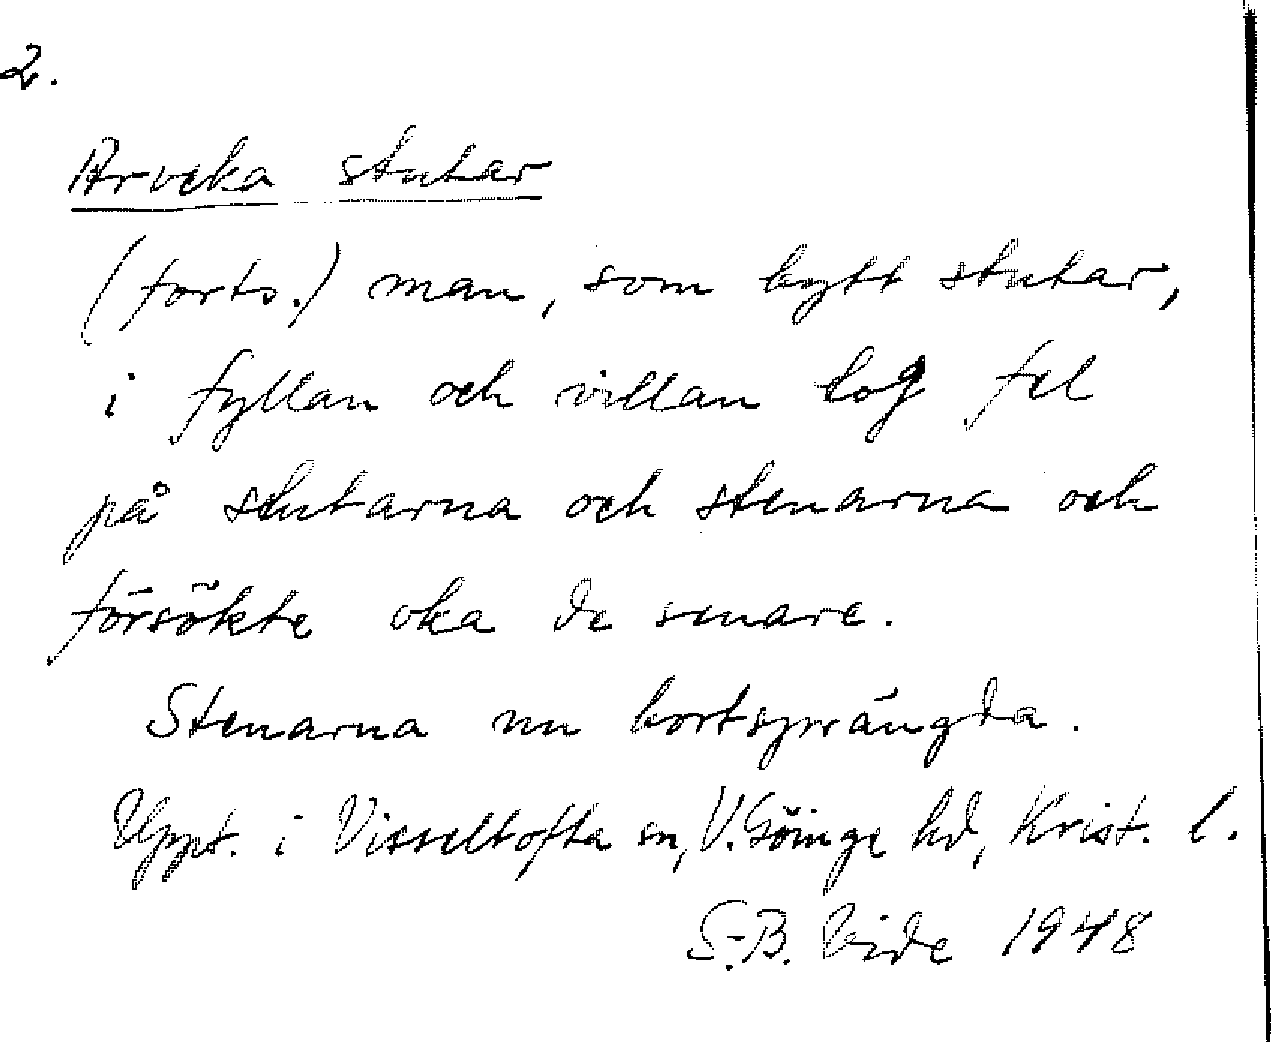 2.
Arveka stutar
(forts.) man, som bytt stutar,
i fyllan och villan tog fel
på stutarna och stenarna och
försökte oka de senare.
Stenarna nu bortsprängda.
Uppt. i Visseltofta sn, V. Göinge hd, Krist. l.
S.-B. Vide 1948